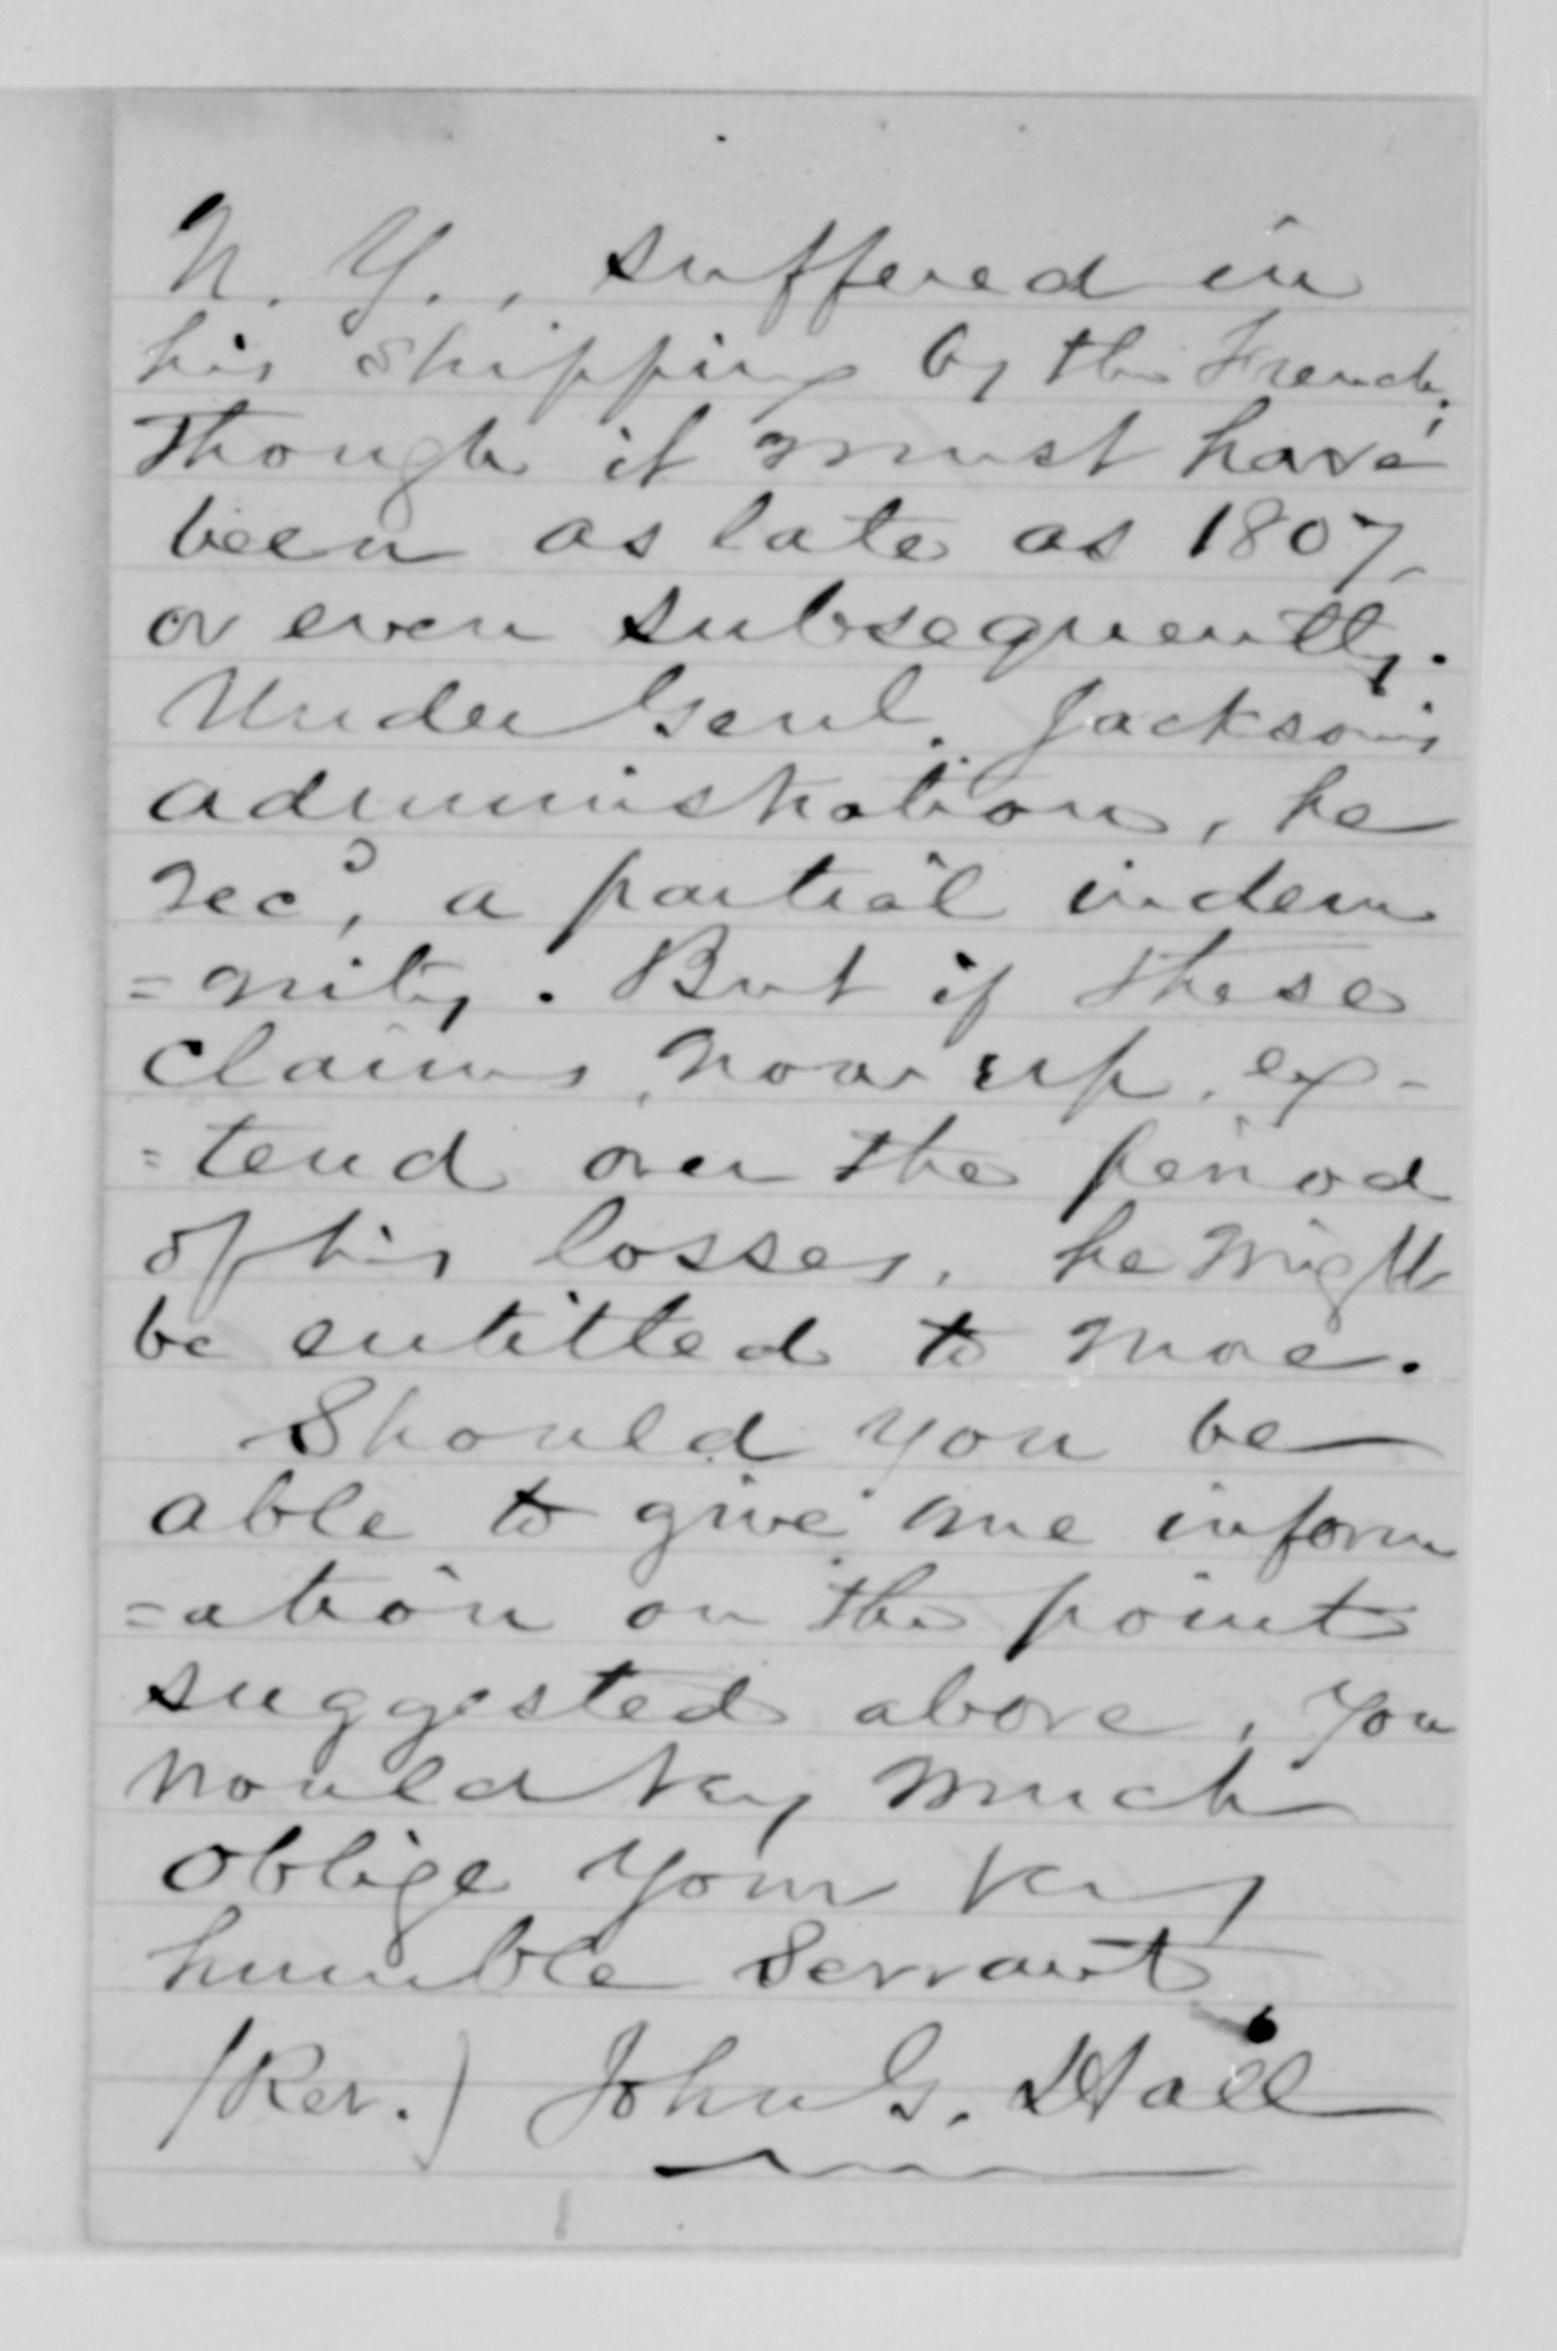 N. Y., suffered in
his shipping by the French;
though it must have
been as late as 1807,
or even subsequently.
Under Genl. Jackson's
administration, he
recd, a partial indem
=nity. But if these
claims, now up, ex-
=tend over the period
of his losses, he might
be entitled to more.
Should you be
able to give me inform
=ation on the point
suggested above, you
would very much
oblige your very
humble servant,
(Rev.) John G. Hall